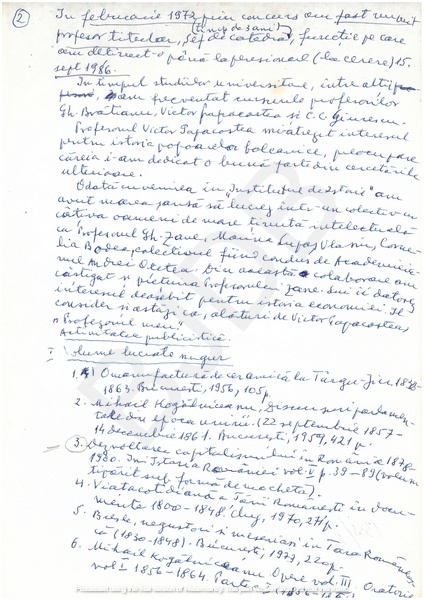 2
În februarie 1972 prin concurs am fost numit
(timp de 3 ani)
profesor titular, șef de catedră, funcție pe care
am deținut-o până la pensionare (la cerere) 15.
sept 1986.
În timpul studiilor universitare, între alții
am frecventat cursurile profesorilor
Gh. Brătianu, Victor Papacostea și C.C. Giurescu.
Profesorul Victor Papacostea mi-a trezit interesul
pentru istoria popoarelor balcanice, preocupare
căreia i-am dedicat o bună parte din cercetările
ulterioare.
Odată cu venirea în "Institutul de Istorie" am
avut marea șansă să lucrez într-un colectiv cu
câțiva oameni de mare ținută intelectuală
ca Profesorul Gh. Zane, Marina Lupaș Vlasiu, Corne-
lia Bodea, colectivul fiind condus de Academicie-
nul Andrei Oțetea. Din această colaborare am
câștigat și prietenia Profesorului Zane. Lui îi datorez
interesul deosebit pentru istoria economiei. Îl
consider și astăzi ca, alături de Victor Papacostea,
"Profesorul meu".
Activitatea publicistică.
I Volume lucrate singur
1. O manufactură de ceramică la Târgu-Jiu 1832-
1863. București, 1956, 105 p.
2. Mihail Kogălniceanu, Discursuri parlamen-
tare din epoca unirii. (22 septembrie 1857-
14 decembrie 1861. București, 1959, 421 p.
3. Dezvoltarea capitalismului în România 1878-
1900. În: Istoria României vol. V p. 39-89 (volum
tipărit sub formă de machetă).
4. Viața cotidiană a Țării Românești în docu-
mente 1800-1848. Cluj, 1970, 271 p.
5. Bresle, negustori și meseriași în Țara Româneas-
că (1830-1848). București, 1973, 220 p.
6. Mihail Kogălniceanu. Opere vol. III. Oratorie
vol I 1856-1864. Partea I (1856-